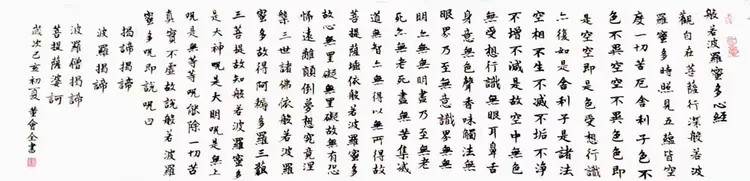 般若波羅蜜多心經
觀自在菩薩行深般若波
羅蜜多時照見五蘊皆空
度一切苦厄舍利子色不
色不異空空不異色色即
是空空即是色受想行識
亦復如是舍利子是諸法
空相不生不滅不垢不淨
不增不減是故空中無色
無受想行識無眼耳鼻舌
身意無色聲香味觸法無
眼界乃至無意識界無無
明亦無無明盡乃至無老
死亦無老死盡無苦集滅
道無智亦無得以無所得故
菩提薩埵依般若波羅蜜多
故心無罣礙無罣礙故無有恐
怖遠離顛倒夢想究竟涅
槃三世諸佛依般若波羅
蜜多故得阿耨多羅三藐
三菩提故知般若波羅蜜多
是大神呪是大明呪是無上
呪是無等等呪能除一切苦
真實不虛故說般若波羅
蜜多呪即說呪曰
揭諦揭諦
波羅揭諦
波羅僧揭諦
菩提薩婆訶
歲次己亥初夏 董會全書